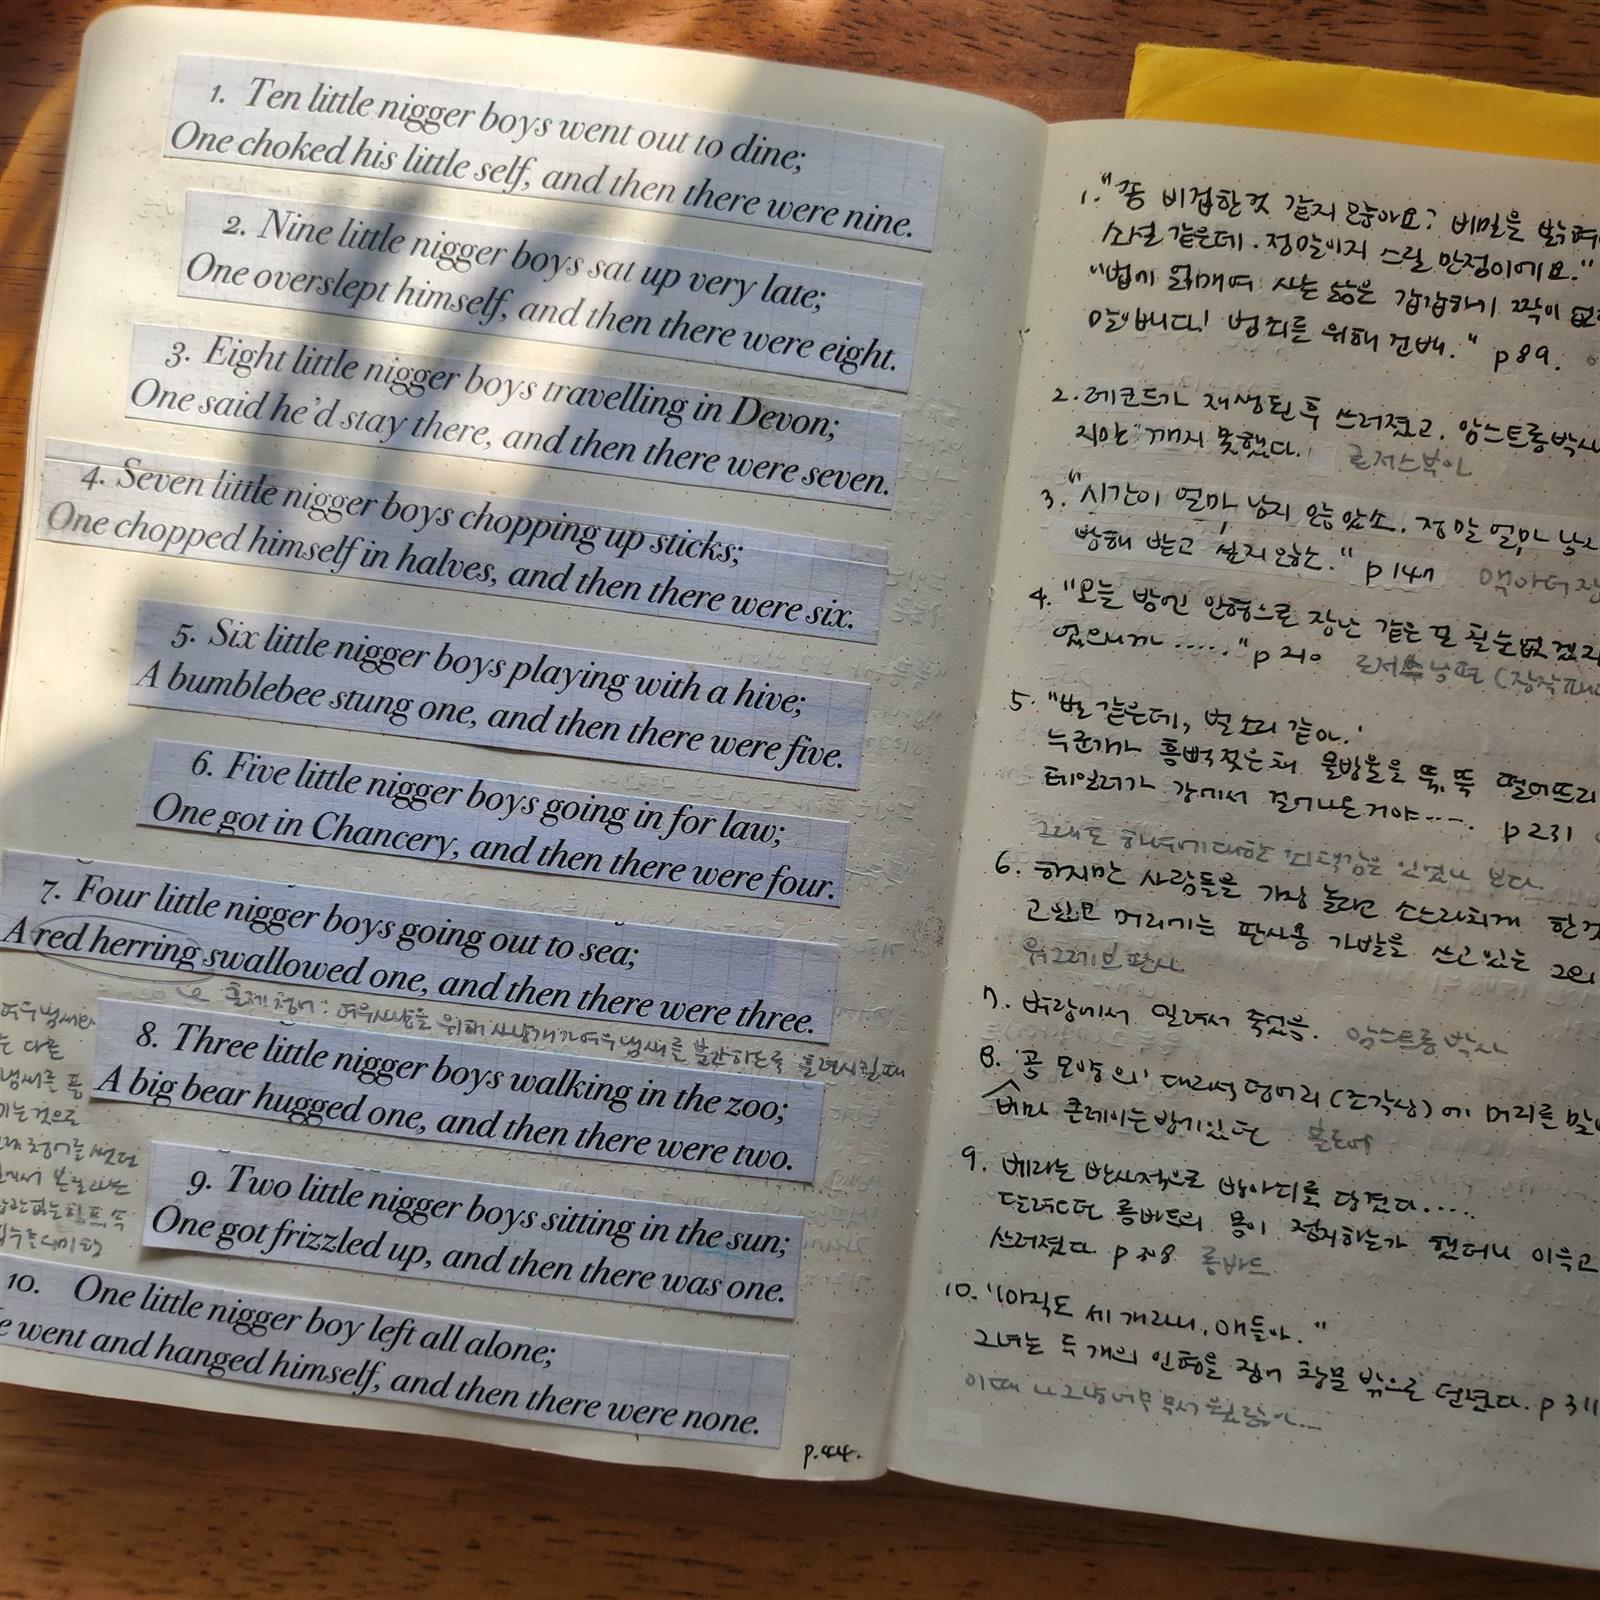 1. Ten little nigger boys went out to dine;
One choked his little self, and then there were nine.
2. Nine little nigger boys sat up very late;
One overslept himself, and then there were eight.
3. Eight little nigger boys travelling in Devon;
One said he'd stay there, and then there were seven.
4. Seven little nigger boys chopping up sticks;
One chopped himself in halves, and then there were six.
5. Six little nigger boys playing with a hive;
A bumblebee stung one, and then there were five.
6. Five little nigger boys going in for law;
One got in Chancery, and then there were four.
7. Four little nigger boys going out to sea;
A red herring swallowed one, and then there were three.
훈제청어: 여우사냥을 위해 사냥개가 여우냄새를 분간하도록 훈련시킬 때
여우냄새와
는 다른
냄새를 풍
기는 것으로
8. Three little nigger boys walking in the zoo;
A big bear hugged one, and then there were two.
9. Two little nigger boys sitting in the sun;
One got frizzled up, and then there was one.
10. One little nigger boy left all alone;
e went and hanged himself, and then there were none.
p.44.
1. "좀 비겁한것 같지 않아요? 비밀을 밝혀
소설 같은데. 정말이지 스릴 만점이에요."
"법에 얽매여 사는 삶은 갑갑하기 짝이 없
말입니다! 범죄를 위해 건배." p89.
2. 레코드가 재생된 후 쓰러졌고. 암스트롱박사
지만 깨지 못했다. 로저스부인
3. "시간이 얼마 남지 않았소. 정말 얼마 남지
방해 받고 싶지 않소." p147 맥아더장
4. "오늘 밤엔 인형으로 장난 같은 건 칠 수 없겠지
었으니까 ......" p210 로저스남편 (장작패다
5. "벌 같은데, 벌 소리 같아.'
누군가가 흠뻑 젖은 채 물방울을 뚝, 뚝 떨어뜨리
테일러가 강에서 걸어나온거야---. p231
그래도 하녀에 대한 죄책감은 있었나 보다
6. 하지만 사람들을 가장 놀라고 소스라치게 한것
고있고 머리에는 판사용 가발을 쓰고 있는 그의
워그레이브 판사
7. 벼랑에서 밀려서 죽었음. 암스트롱 박사
8. '곰 모양의' 대리석 덩어리 (조각상)에 머리를 맞
베라 클레이손 방에 있던 블로어
9. 베라는 반사적으로 방아쇠를 당겼다.....
달려오던 롬바드의 몸이 정지하는가 했더니 이윽고
쓰러졌다. p308 롬바드
10. "아직도 세 개라니, 얘들아."
그녀는 두 개의 인형을 집어 창문 밖으로 던졌다. p311
이때 나 그냥 너무 무서웠잖아...